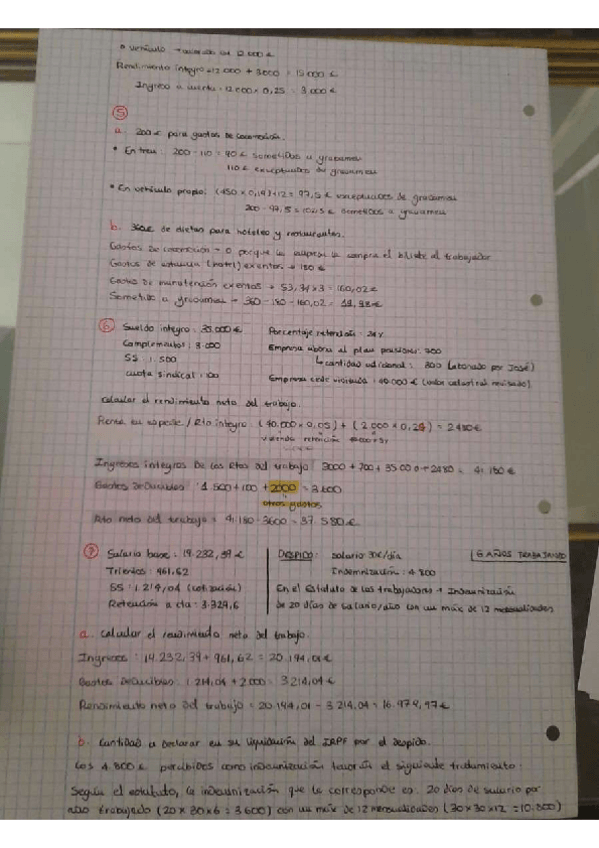 Vehículo 12.000€
Rendimiento íntegro = 12.000 + 3000 = 15.000€
Ingreso a cuenta = 12.000 x 0,25 = 3000€
5
a. 200€ para gastos de locomoción.
En tren: 200 - 110 = 90€ sometidos a gravamen
110€ exceptuados de gravamen
En vehículo propio: exceptuados de gravamen
sometidos a gravamen
b. 360€ de dietas para hoteles y restaurantes.
Gastos de locomoción = 0 porque la empresa le compra el billete al trabajador
Gastos de estancia (hotel) exentos → 180€
Gastos de manutención exentos → 53,34 x 3 = 160,02€
Sometido a gravamen → 360 - 180 - 160,02 = 19,98€
6 Sueldo íntegro: Porcentaje retención: 24%
Complementos: 3.000 Empresa abona al plan pensiones: 700
SS: 1.500 ↳ cantidad adicional: 300 (abonado por José)
Cuota sindical: 100 Empresa cede vivienda: 40.000€ (valor catastral revisado)
Calcular el rendimiento neto del trabajo.
Renta en especie / Rto íntegro: (40.000 x 0,05) + (2000 x 0,24) = 2480€
vivienda retención
Ingresos íntegros de los Rtos del trabajo: 3000 + 700 + 35000 + 2480 = 41.180€
Gastos deducibles: 1.500 + 100 + 2000 = 3.600
otros gastos
Rto neto del trabajo = 41.180 - 3600 = 37.580€
7 Salario base: 19.232,39€ DESPIDO: salario 30€/día 6 AÑOS TRABAJANDO
Trienios: 961,62 Indemnización: 4.800
SS: 1.214,04 (cotización) En el Estatuto de los trabajadores → Indemnización
Retención a cta: 3.329,6 de 20 días de salario/año con un máx de 12 mensualidades
a. Calcular el rendimiento neto del trabajo.
Ingresos: 19.232,39 + 961,62 = 20.194,01€
Gastos deducibles: 1.214,04 + 2.000 = 3214,04€
Rendimiento neto del trabajo = 20.194,01 - 3.214,04 = 16.979,97€
b. Cantidad a declarar en su liquidación del IRPF por el despido.
Los 4.800€ percibidos como indemnización tendrán el siguiente tratamiento:
Según el estatuto, la indemnización que le corresponde es: 20 días de salario por
año trabajado (20 x 30 x 6 = 3600) con un máx de 12 mensualidades (30 x 30 x 12 = 10.800)